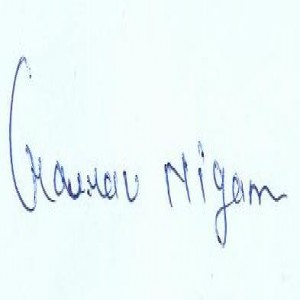 Gaurav Nigam